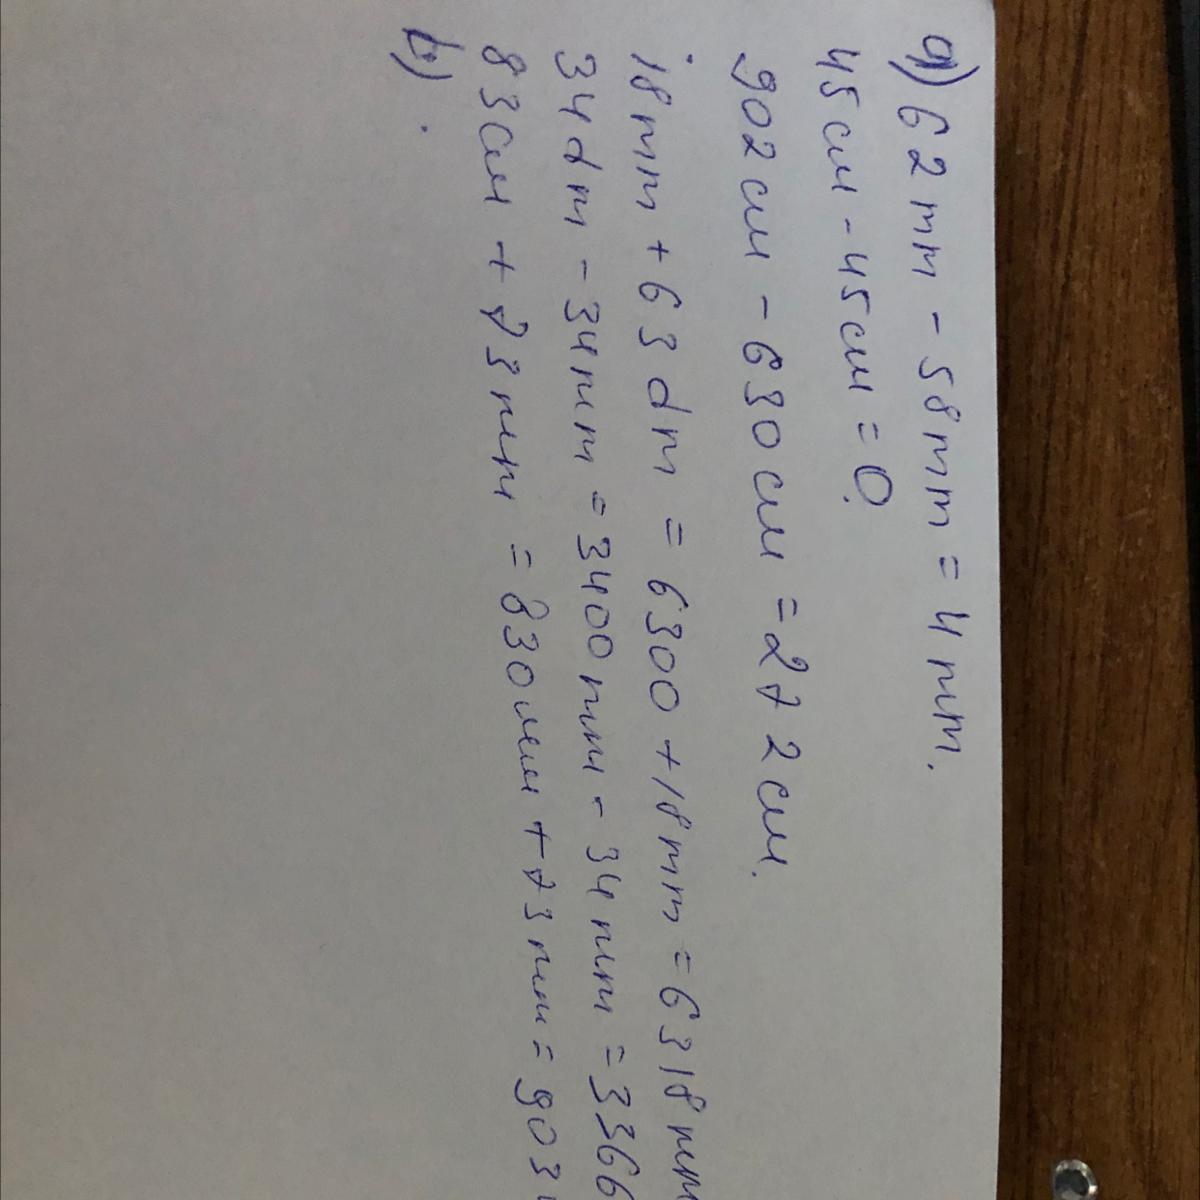 a) 62 mm - 58 mm = 4 mm.
45 см - 45 см = 0.
902 см - 630 см = 272 см.
18 mm + 63 dm = 6300 + 18 mm = 6318 mm
34 dm - 34 mm = 3400 mm - 34 mm = 3366
83 см + 73 mm = 830 мм + 73 mm = 903
b) .